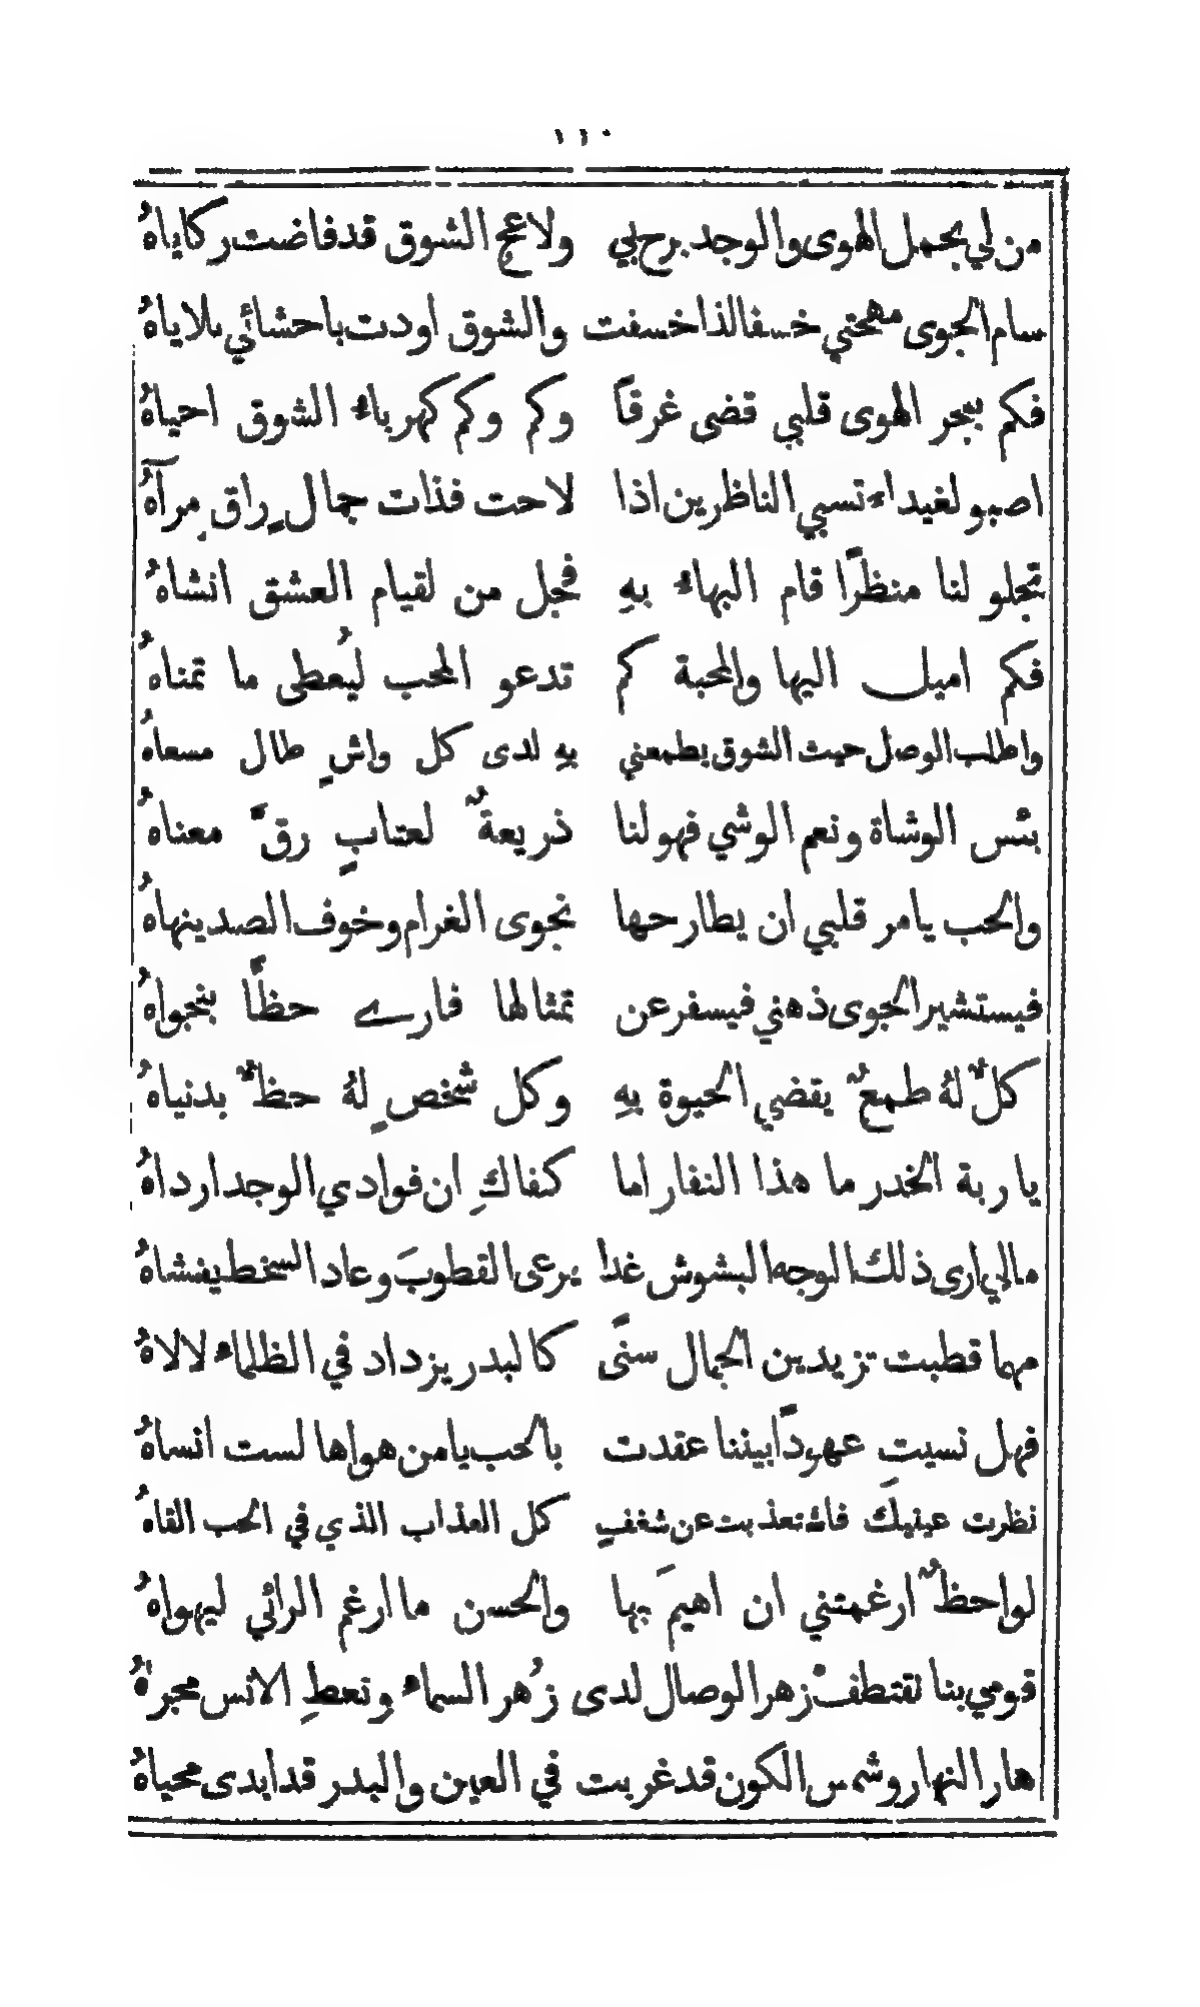 ١١٠
من لي بحمل الهوى والوجد برح بي ولاعج الشوق قد فاضت ركاياهُ
سام الجوى مهجتي خسفا لذا خسفت والشوق اودت باحشائي بلاياهُ
فكم ببحر الهوى قلبي قضى غرقاً وكم وكم كهرباء الشوق احياهُ
اصبو لغيداء تسبي الناظرين اذا لاحت فذات جمالٍ راق مِرآهُ
تجلو لنا منظرًا قام البهاء بهِ فجل من لقيام العشق انشاهُ
فكم اميل اليها والمحبة كم تدعو المحب ليُعطى ما تمناهُ
واطلب الوصل حيث الشوق يطمعني بهِ لدى كل واشٍ طال مسعاهُ
بئس الوشاة ونعم الوشي فهو لنا ذريعةٌ لعتابٍ رقَّ معناهُ
والحب يامر قلبي ان يطارحها نجوى الغرام وخوف الصد ينهاهُ
فيستشير الجوى ذهني فيسفر عن تمثالها فارے حظًا بنجواهُ
كلٌ لهُ طمعٌ يقضي الحيوة بهِ وكل شخصٍ لهُ حظٌ بدنياهُ
يا ربة الخدر ما هذا النفار اما كفاكِ ان فوادي الوجد ارداهُ
مالي ارى ذلك الوجه البشوش غدا يرعى القطوبَ وعاد السخط يغشاهُ
مهما قطبت تزيدين الجمال سنًى كالبدر يزداد في الظلماء لالاهُ
فهل نسيتِ عهودًا بيننا عقدت بالحب يا من هواها لست انساهُ
نظرت عينيكَ فاستعذبت عن شغفٍ كل العذاب الذي في الحب القاهُ
لواحظٌ ارغمتني ان اهيمَ بها والحسن ما ارغم الرائي ليهواهُ
قومي بنا نقتطفْ زهر الوصال لدى زُهر السماء ونعطِ الانس مجراهُ
هار النهار وشمس الكون قد غربت في العين والبدر قد ابدى محياهُ